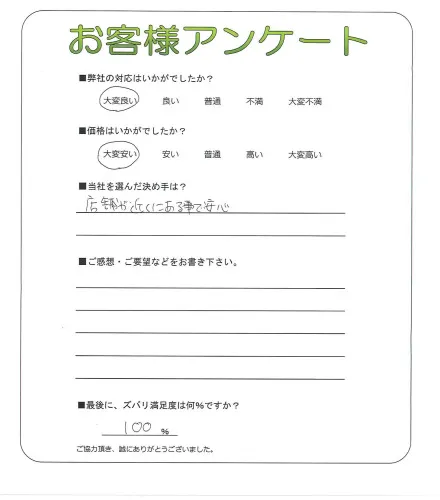 お客様アンケート
■弊社の対応はいかがでしたか？
大変良い 良い 普通 不満 大変不満
■価格はいかがでしたか？
大変安い 安い 普通 高い 大変高い
■当社を選んだ決め手は？
店舗が近くにある事で安心
■ご感想・ご要望などをお書き下さい。
■最後に、ズバリ満足度は何%ですか？
100 %
ご協力頂き、誠にありがとうございました。